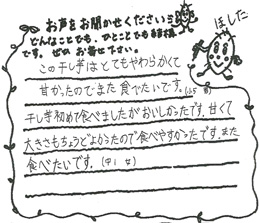 お声をお聞かせください
どんなことでも、ひとことでも結構
です。ぜひお寄せ下さい。
ほしこ
この干し芋はとてもやわらかくて
甘かったのでまた食べたいです。(小5 男)
干し芋初めて食べましたがおいしかったです。甘くて
大きさもちょうどよかったので食べやすかったです。また
食べたいです。(中1 女)